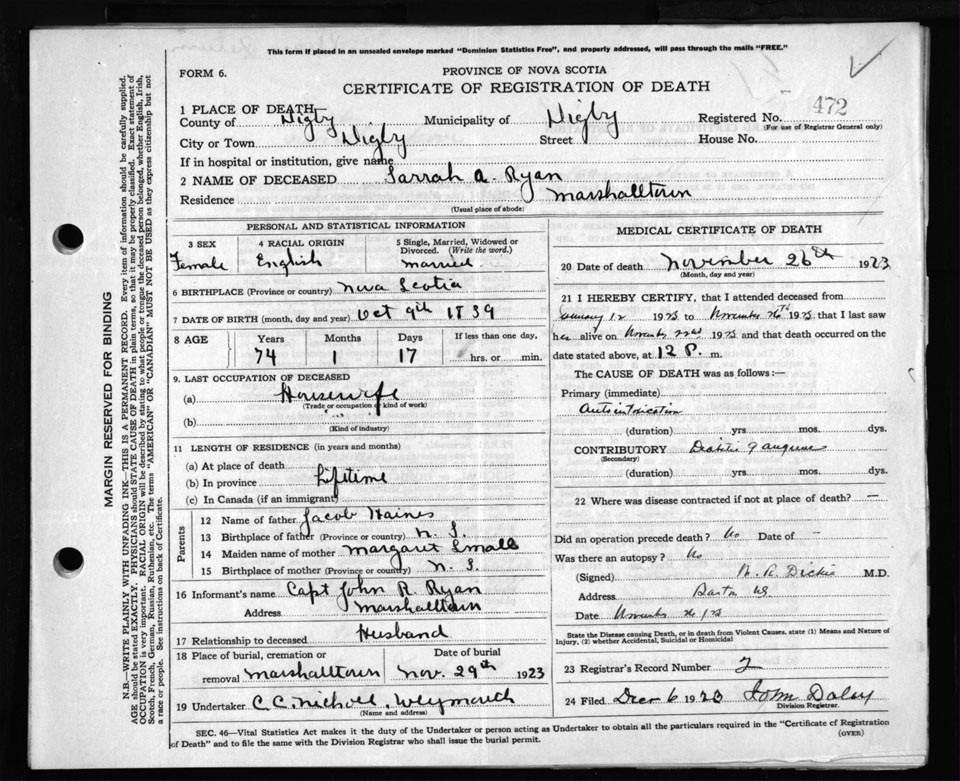 This form if placed in an unsealed envelope marked "Dominion Statistics Free", and properly addressed, will pass through the mails "FREE."
FORM 6.
PROVINCE OF NOVA SCOTIA
CERTIFICATE OF REGISTRATION OF DEATH
472
1 PLACE OF DEATH—
County of Digby Municipality of Digby Registered No.
(For use of Registrar General only)
City or Town Digby Street House No.
If in hospital or institution, give name
2 NAME OF DECEASED Sarrah A. Ryan
Residence Marshalltown
(Usual place of abode)
PERSONAL AND STATISTICAL INFORMATION
3 SEX 4 RACIAL ORIGIN 5 Single, Married, Widowed or Divorced. (Write the word.)
Female English Married.
6 BIRTHPLACE (Province or country) Nova Scotia
7 DATE OF BIRTH (month, day and year) Oct 9th 1839
8 AGE Years Months Days If less than one day,
74 1 17 hrs. or min.
9. LAST OCCUPATION OF DECEASED
(a) Housewife
(Trade or occupation or kind of work)
(b)
(Kind of industry)
11 LENGTH OF RESIDENCE (in years and months)
(a) At place of death
(b) In province Lifetime
(c) In Canada (if an immigrant)
Parents
12 Name of father Jacob Haines
13 Birthplace of father (Province or country) N. S.
14 Maiden name of mother Margaret Small
15 Birthplace of mother (Province or country) N. S.
16 Informant's name Capt John R Ryan
Address Marshalltown
17 Relationship to deceased Husband
18 Place of burial, cremation or removal Marshalltown
Date of burial Nov. 29th 1923
19 Undertaker C. C. Nicholl, Weymouth
(Name and address)
MEDICAL CERTIFICATE OF DEATH
20 Date of death November 26th 1923
(Month, day and year)
21 I HEREBY CERTIFY, that I attended deceased from
January 12 1923 to November 26th 1923 that I last saw
her alive on November 22nd 1923 and that death occurred on the
date stated above, at 12 P. m.
The CAUSE OF DEATH was as follows:—
Primary (immediate)
Autointoxication
(duration) yrs. mos. dys.
CONTRIBUTORY
(Secondary)
(duration) yrs. mos. dys.
22 Where was disease contracted if not at place of death? —
Did an operation precede death? No Date of —
Was there an autopsy? No
(Signed) Dickie M.D.
Address Barton NS
Date
State the Disease causing Death, or in death from Violent Causes, state (1) Means and Nature of Injury, (2) whether Accidental, Suicidal or Homicidal
23 Registrar's Record Number
24 Filed Dec 6 1923 John Daley
Division Registrar.
SEC. 46—Vital Statistics Act makes it the duty of the Undertaker or person acting as Undertaker to obtain all the particulars required in the "Certificate of Registration
of Death" and to file the same with the Division Registrar who shall issue the burial permit.
(OVER)
MARGIN RESERVED FOR BINDING
N.B.—WRITE PLAINLY WITH UNFADING INK—THIS IS A PERMANENT RECORD. Every item of information should be carefully supplied.
AGE should be stated EXACTLY. PHYSICIANS should STATE CAUSE OF DEATH in plain terms, so that it may be properly classified. Exact statement of
OCCUPATION is very important. RACIAL ORIGIN will be described by stating to what people or tongue the deceased person belonged, whether English, Irish,
Scotch, French, German, Russian, Ruthenian, etc. The terms "AMERICAN" OR "CANADIAN" MUST NOT BE USED as they express citizenship but not
a race or people. See instructions on back of Certificate.